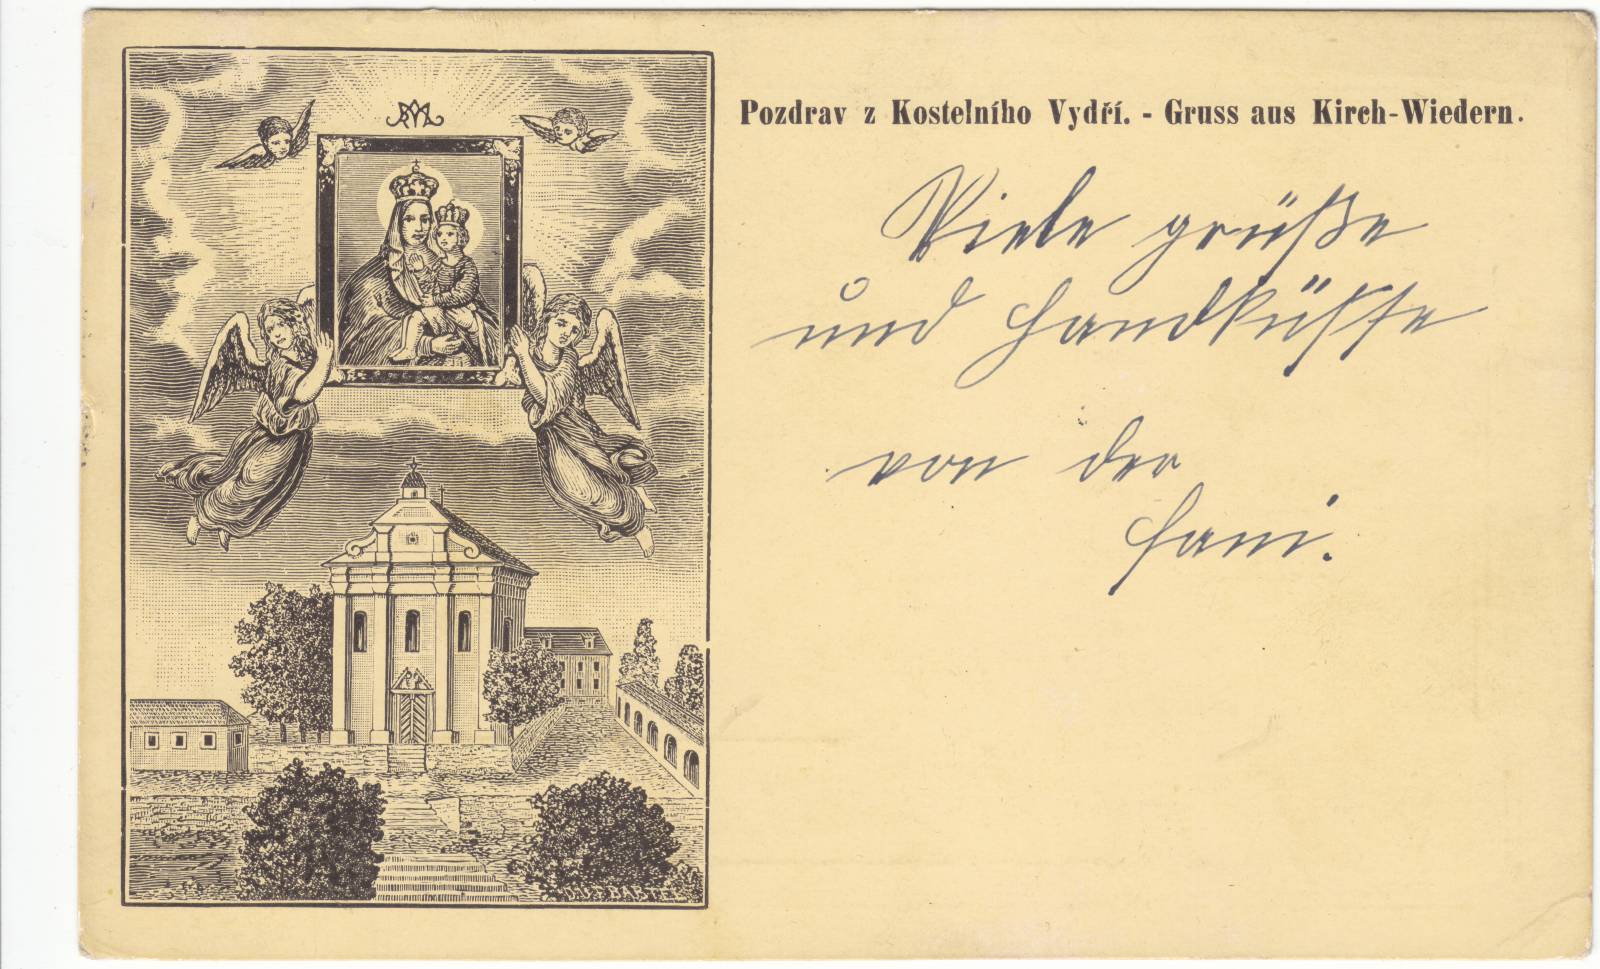 Pozdrav z Kostelního Vydří. - Gruss aus Kirch-Wiedern.
Viele grüße
und Handküsse
von der
Hani.